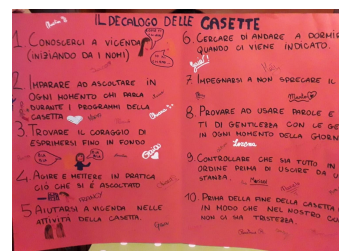 IL DECALOGO DELLE CASETTE
1. CONOSCERCI A VICENDA
(INIZIANDO DAI NOMI)
2 IMPARARE AD ASCOLTARE IN
OGNI MOMENTO CHI PARLA
DURANTE I PROGRAMMI DELLA
CASETTA
3 TROVARE IL CORAGGIO DI
ESPRIMERSI FINO IN FONDO
4. AGIRE E METTERE IN PRATICA
CIÒ CHE SI È ASCOLTATO
5 AIUTARSI A VICENDA NELLE
ATTIVITÀ DELLA CASETTA.
6. CERCARE DI ANDARE A DORMI
QUANDO CI VIENE INDICATO.
7. IMPEGNARSI A NON SPRECARE IL
8. PROVARE AD USARE PAROLE E
TI DI GENTILEZZA CON LE GE
IN OGNI MOMENTO DELLA GIORN
Lorena
9. CONTROLLARE CHE SIA TUTTO IN
ORDINE PRIMA DI USCIRE DA U
STANZA.
10. PRIMA DELLA FINE DELLA CASETTA
IN MODO CHE NEL NOSTRO CU
NON CI SIA TRISTEZZA.